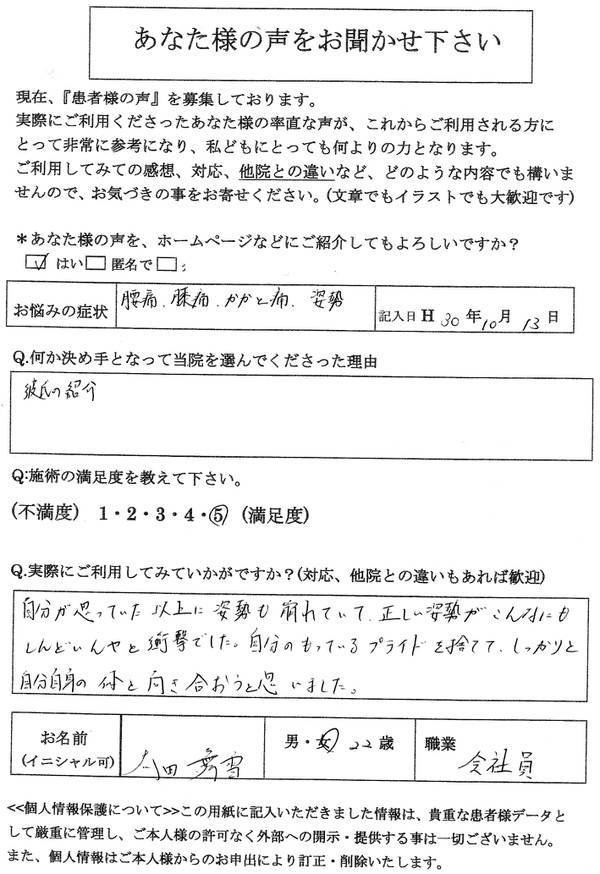 あなた様の声をお聞かせ下さい
現在、『患者様の声』を募集しております。
実際にご利用くださったあなた様の率直な声が、これからご利用される方に
とって非常に参考になり、私どもにとっても何よりの力となります。
ご利用してみての感想、対応、他院との違いなど、どのような内容でも構いま
せんので、お気づきの事をお寄せください。(文章でもイラストでも大歓迎です)
＊あなた様の声を、ホームページなどにご紹介してもよろしいですか？
☑はい□匿名で□;
お悩みの症状 腰痛、膝痛、かかと痛、姿勢 記入日 H 30 年 10 月 13 日
Q.何か決め手となって当院を選んでくださった理由
彼氏の紹介
Q:施術の満足度を教えて下さい。
(不満度) 1・2・3・4・⑤ (満足度)
Q.実際にご利用してみていかがですか？(対応、他院との違いもあれば歓迎)
自分が思っていた以上に姿勢も崩れていて、正しい姿勢がこんなにも
しんどいんやと衝撃でした。自分のもっているプライドを捨てて、しっかりと
自分自身の体と向き合おうと思いました。
お名前 男・女 22 歳 職業 会社員
(イニシャル可) 田
<<個人情報保護について>>この用紙に記入いただきました情報は、貴重な患者様データと
して厳重に管理し、ご本人様の許可なく外部への開示・提供する事は一切ございません。
また、個人情報はご本人様からのお申出により訂正・削除いたします。